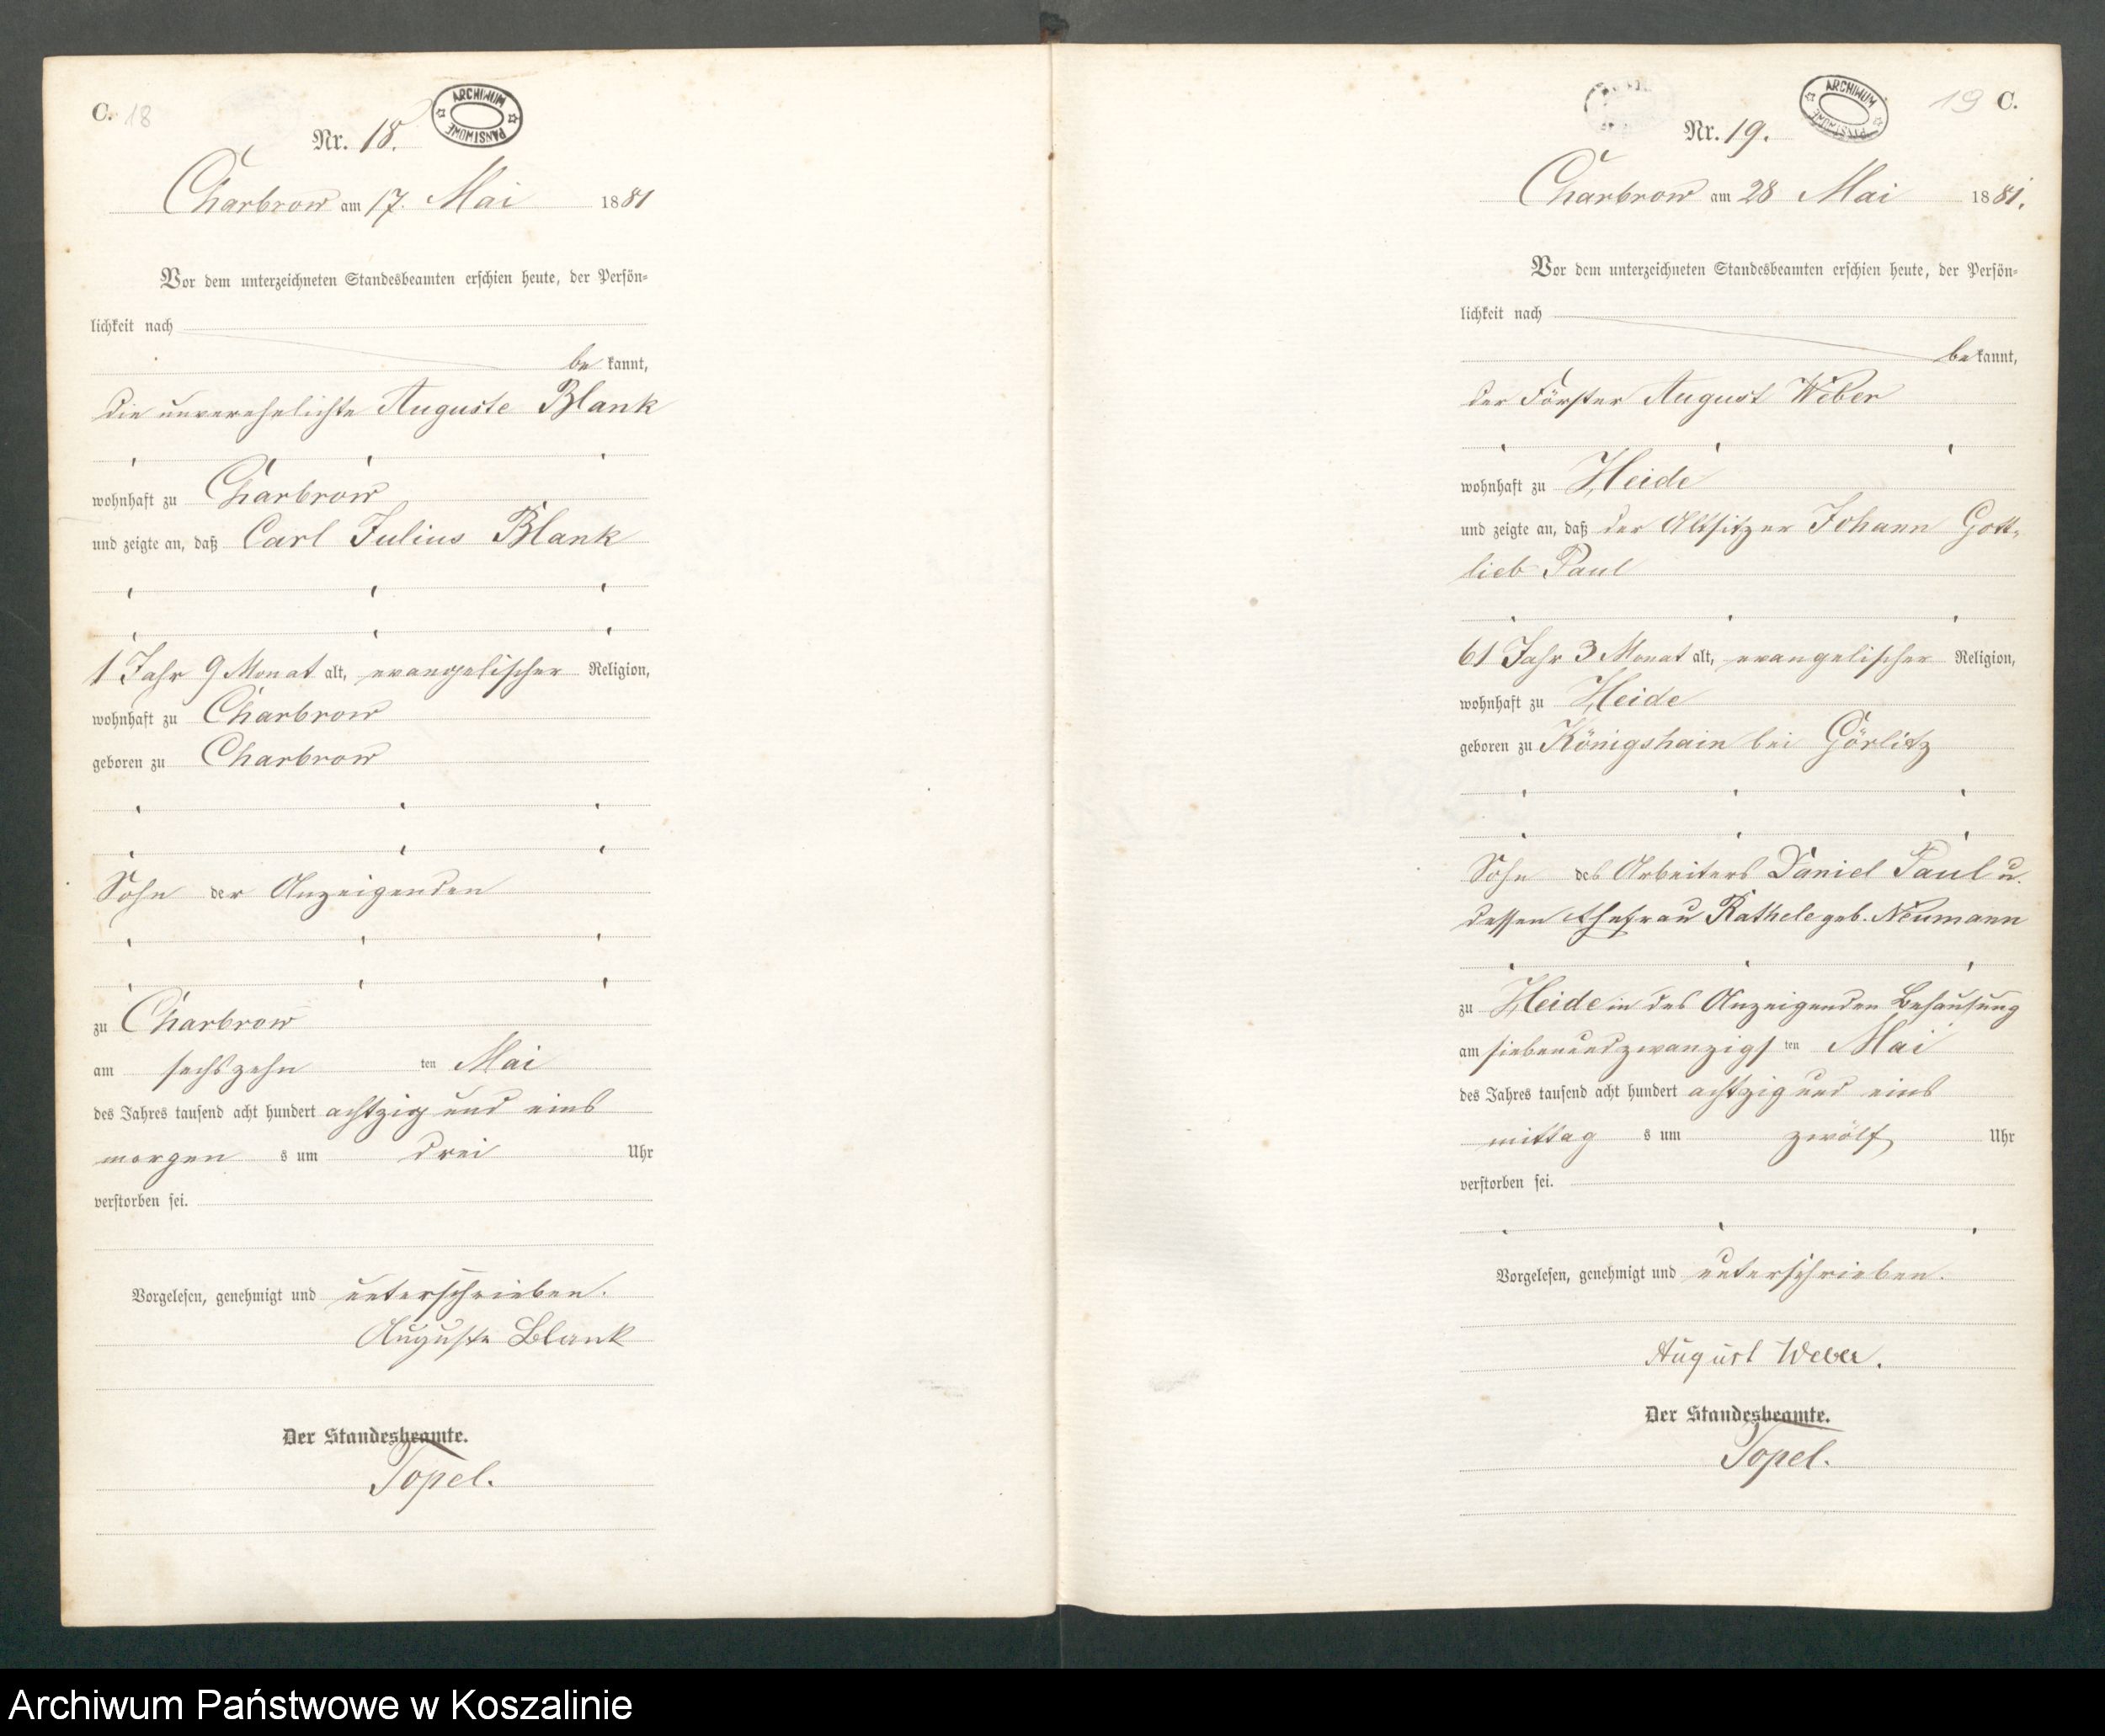 C. 18
ARCHIWUM PAŃSTWOWE
Nr. 18.
Charbrow am 17. Mai 1881
Vor dem unterzeichneten Standesbeamten erschien heute, der Persön-
lichkeit nach
be kannt,
die unverehelichte Auguste Blank
wohnhaft zu Charbrow
und zeigte an, daß Carl Julius Blank
1 Jahr 9 Monat alt, evangelischer Religion,
wohnhaft zu Charbrow
geboren zu Charbrow
Sohn der Anzeigenden
zu Charbrow
am sechszehn ten Mai
des Jahres tausend acht hundert achtzig und eins
morgen s um drei Uhr
verstorben sei.
Vorgelesen, genehmigt und unterschrieben.
Auguste Blank
Der Standesbeamte.
Topel.
19 C.
ARCHIWUM PAŃSTWOWE
Nr. 19.
Charbrow am 28 Mai 1881.
Vor dem unterzeichneten Standesbeamten erschien heute, der Persön-
lichkeit nach
be kannt,
der Förster August Weber
wohnhaft zu Heide
und zeigte an, daß der Altsitzer Johann Gott-
lieb Paul
61 Jahr 3 Monat alt, evangelischer Religion,
wohnhaft zu Heide
geboren zu Königshain bei Görlitz
Sohn des Arbeiters Daniel Paul u.
dessen Ehefrau Rathele geb. Neumann
zu Heide in des Anzeigenden Behausung
am siebenundzwanzigs ten Mai
des Jahres tausend acht hundert achtzig und eins
mittag s um zwölf Uhr
verstorben sei.
Vorgelesen, genehmigt und unterschrieben.
August Weber.
Der Standesbeamte.
Topel.
Archiwum Państwowe w Koszalinie